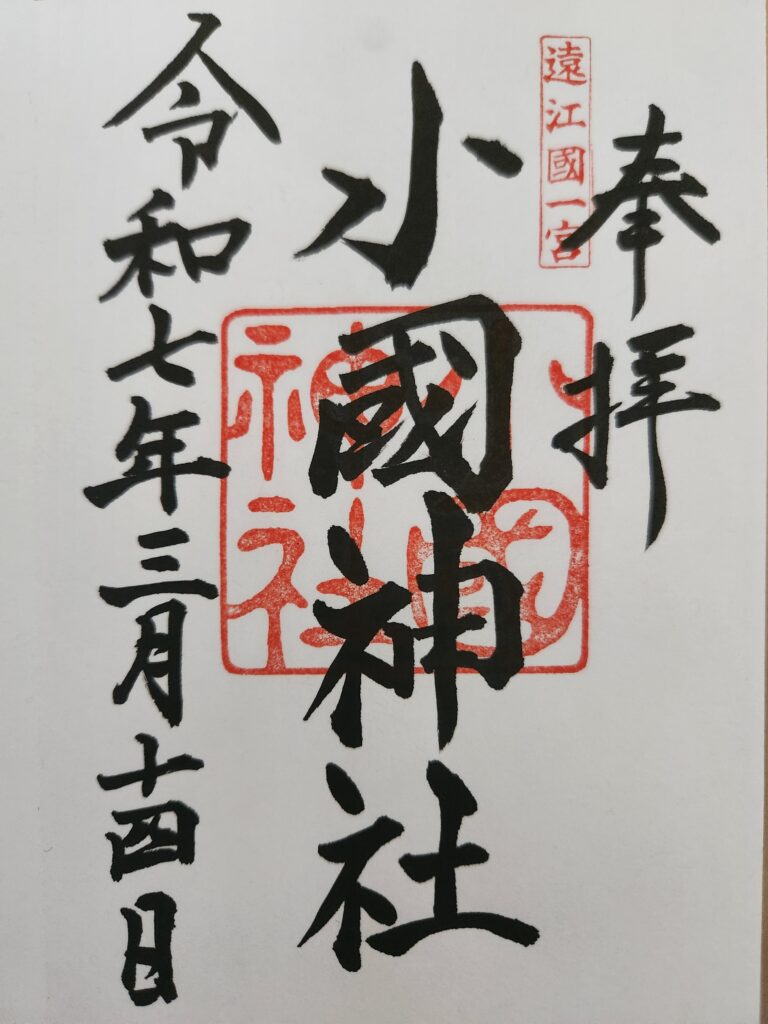 奉拝
遠江國一宮
小國神社
小國神社
令和七年三月十四日